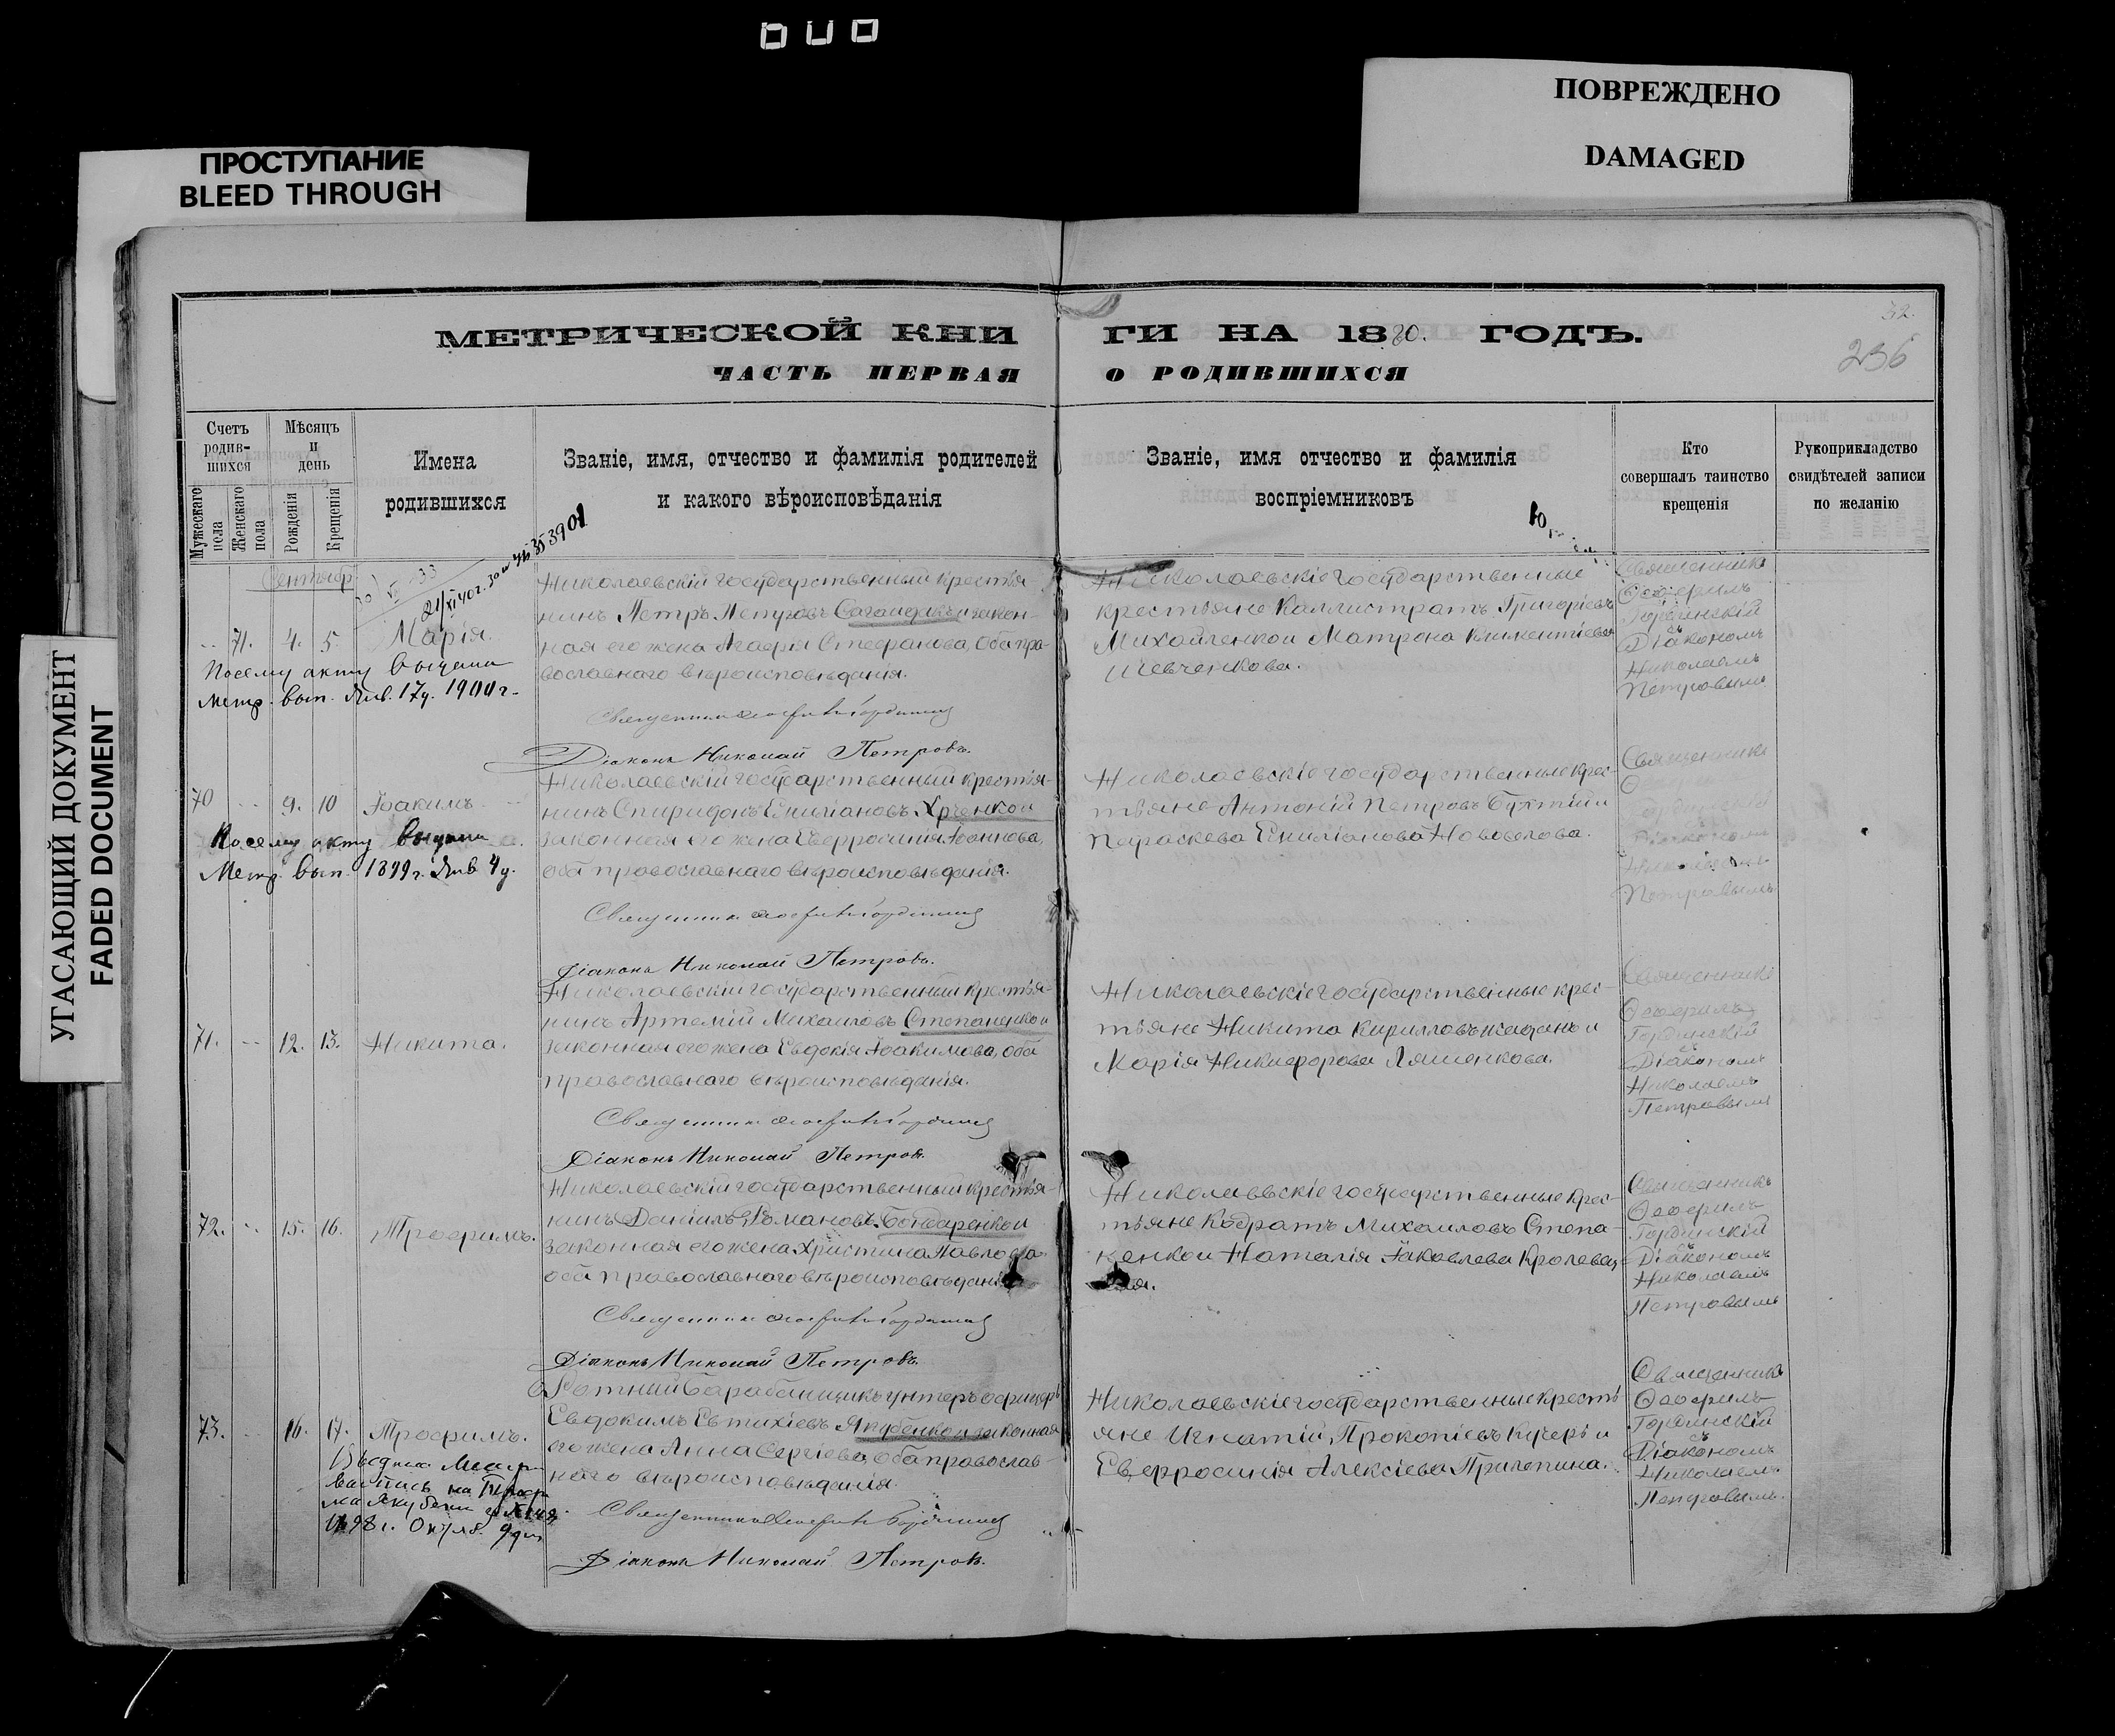 ПОВРЕЖДЕНО
DAMAGED
ПРОСТУПАНИЕ
BLEED THROUGH
УГАСАЮЩИЙ ДОКУМЕНТ
FADED DOCUMENT
32.
236
МЕТРИЧЕСКОЙ КНИ ГИ НА 1880. ГОДЪ.
ЧАСТЬ ПЕРВАЯ О РОДИВШИХСЯ
Счетъ родив-шихся
Мужескаго пола
Женскаго пола
Мѣсяцъ и день
Рожденія
Крещенія
Имена родившихся
Званіе, имя, отчество и фамилія родителей
и какого вѣроисповѣданія
Званіе, имя отчество и фамилія
воспріемниковъ
Кто
совершалъ таинство
крещенія
Рукоприкладство
свидѣтелей записи
по желанію
Сентябрь
71. 4. 5. Марія.
Посему акту выдана
метр. вып. Янв. 17 д. 1900 г.
Николаевскій государственный крестья
нинъ Петръ Петровъ и закон-
ная его жена Агафія Стефанова, оба пра-
вославнаго вѣроисповѣданія.
Діаконъ Николай Петровъ.
Николаевскіе государственные
крестьяне Каллистратъ Григоріевъ
Михайленко и Матрона Викентіева
Шевченкова.
Священникъ
Ѳеофилъ
Гординскій
съ
Діакономъ
Николаемъ
Петровымъ
70 9. 10 Іоакимъ
Посему акту выдана
Метр. вып. 1899 г. Янв 4 д.
Николаевскій государственный крестья-
нинъ Спиридонъ Емиліановъ и
законная его жена Евфросинія Іоаннова,
оба православнаго вѣроисповѣданія.
Діаконъ Николай Петровъ.
Николаевскіе государственные крес-
тьяне Антоній Петровъ и
Параскева Емиліанова Новоселова.
Священникъ
Петровымъ
71. 12. 13. Никита.
Николаевскій государственный крестья-
нинъ Артемій Михаиловъ Степаненко и
законная его жена Евдокія Іоакимова, оба
православнаго вѣроисповѣданія.
Діаконъ Николай Петровъ.
Николаевскіе государственные крес-
тьяне Никита Кирилловъ Жаданъ и
Марія Никифорова Ляшенкова.
Священникъ
Ѳеофилъ
Гординскій
съ
Діакономъ
Николаемъ
Петровымъ
72. 15. 16. Трофимъ.
Николаевскій государственный крестья-
нинъ Даніилъ Романовъ Бондаренко и
законная его жена Христина Павлова
оба православнаго вѣроисповѣданія
Діаконъ Николай Петровъ.
Николаевскіе государственные крес-
тьяне Кодратъ Михаиловъ Степа-
ненко и Наталія Іаковлева
Священникъ
Ѳеофилъ
Гординскій
съ
Діакономъ
Николаемъ
Петровымъ
73. 16. 17. Трофимъ.
1898 г. Октяб. 9 дня
Ротный барабанщикъ унтеръ офицеръ
Евдокимъ Евтихіевъ Якубенко и законная
его жена Анна Сергіева, оба православ-
наго вѣроисповѣданія
Діаконъ Николай Петровъ.
Николаевскіе государственные кресть
яне Игнатій Прокопіевъ Кучеръ и
Евфросинія Алексіева Прилепина.
Священникъ
Ѳеофилъ
Гординскій
съ
Діакономъ
Николаемъ
Петровымъ.